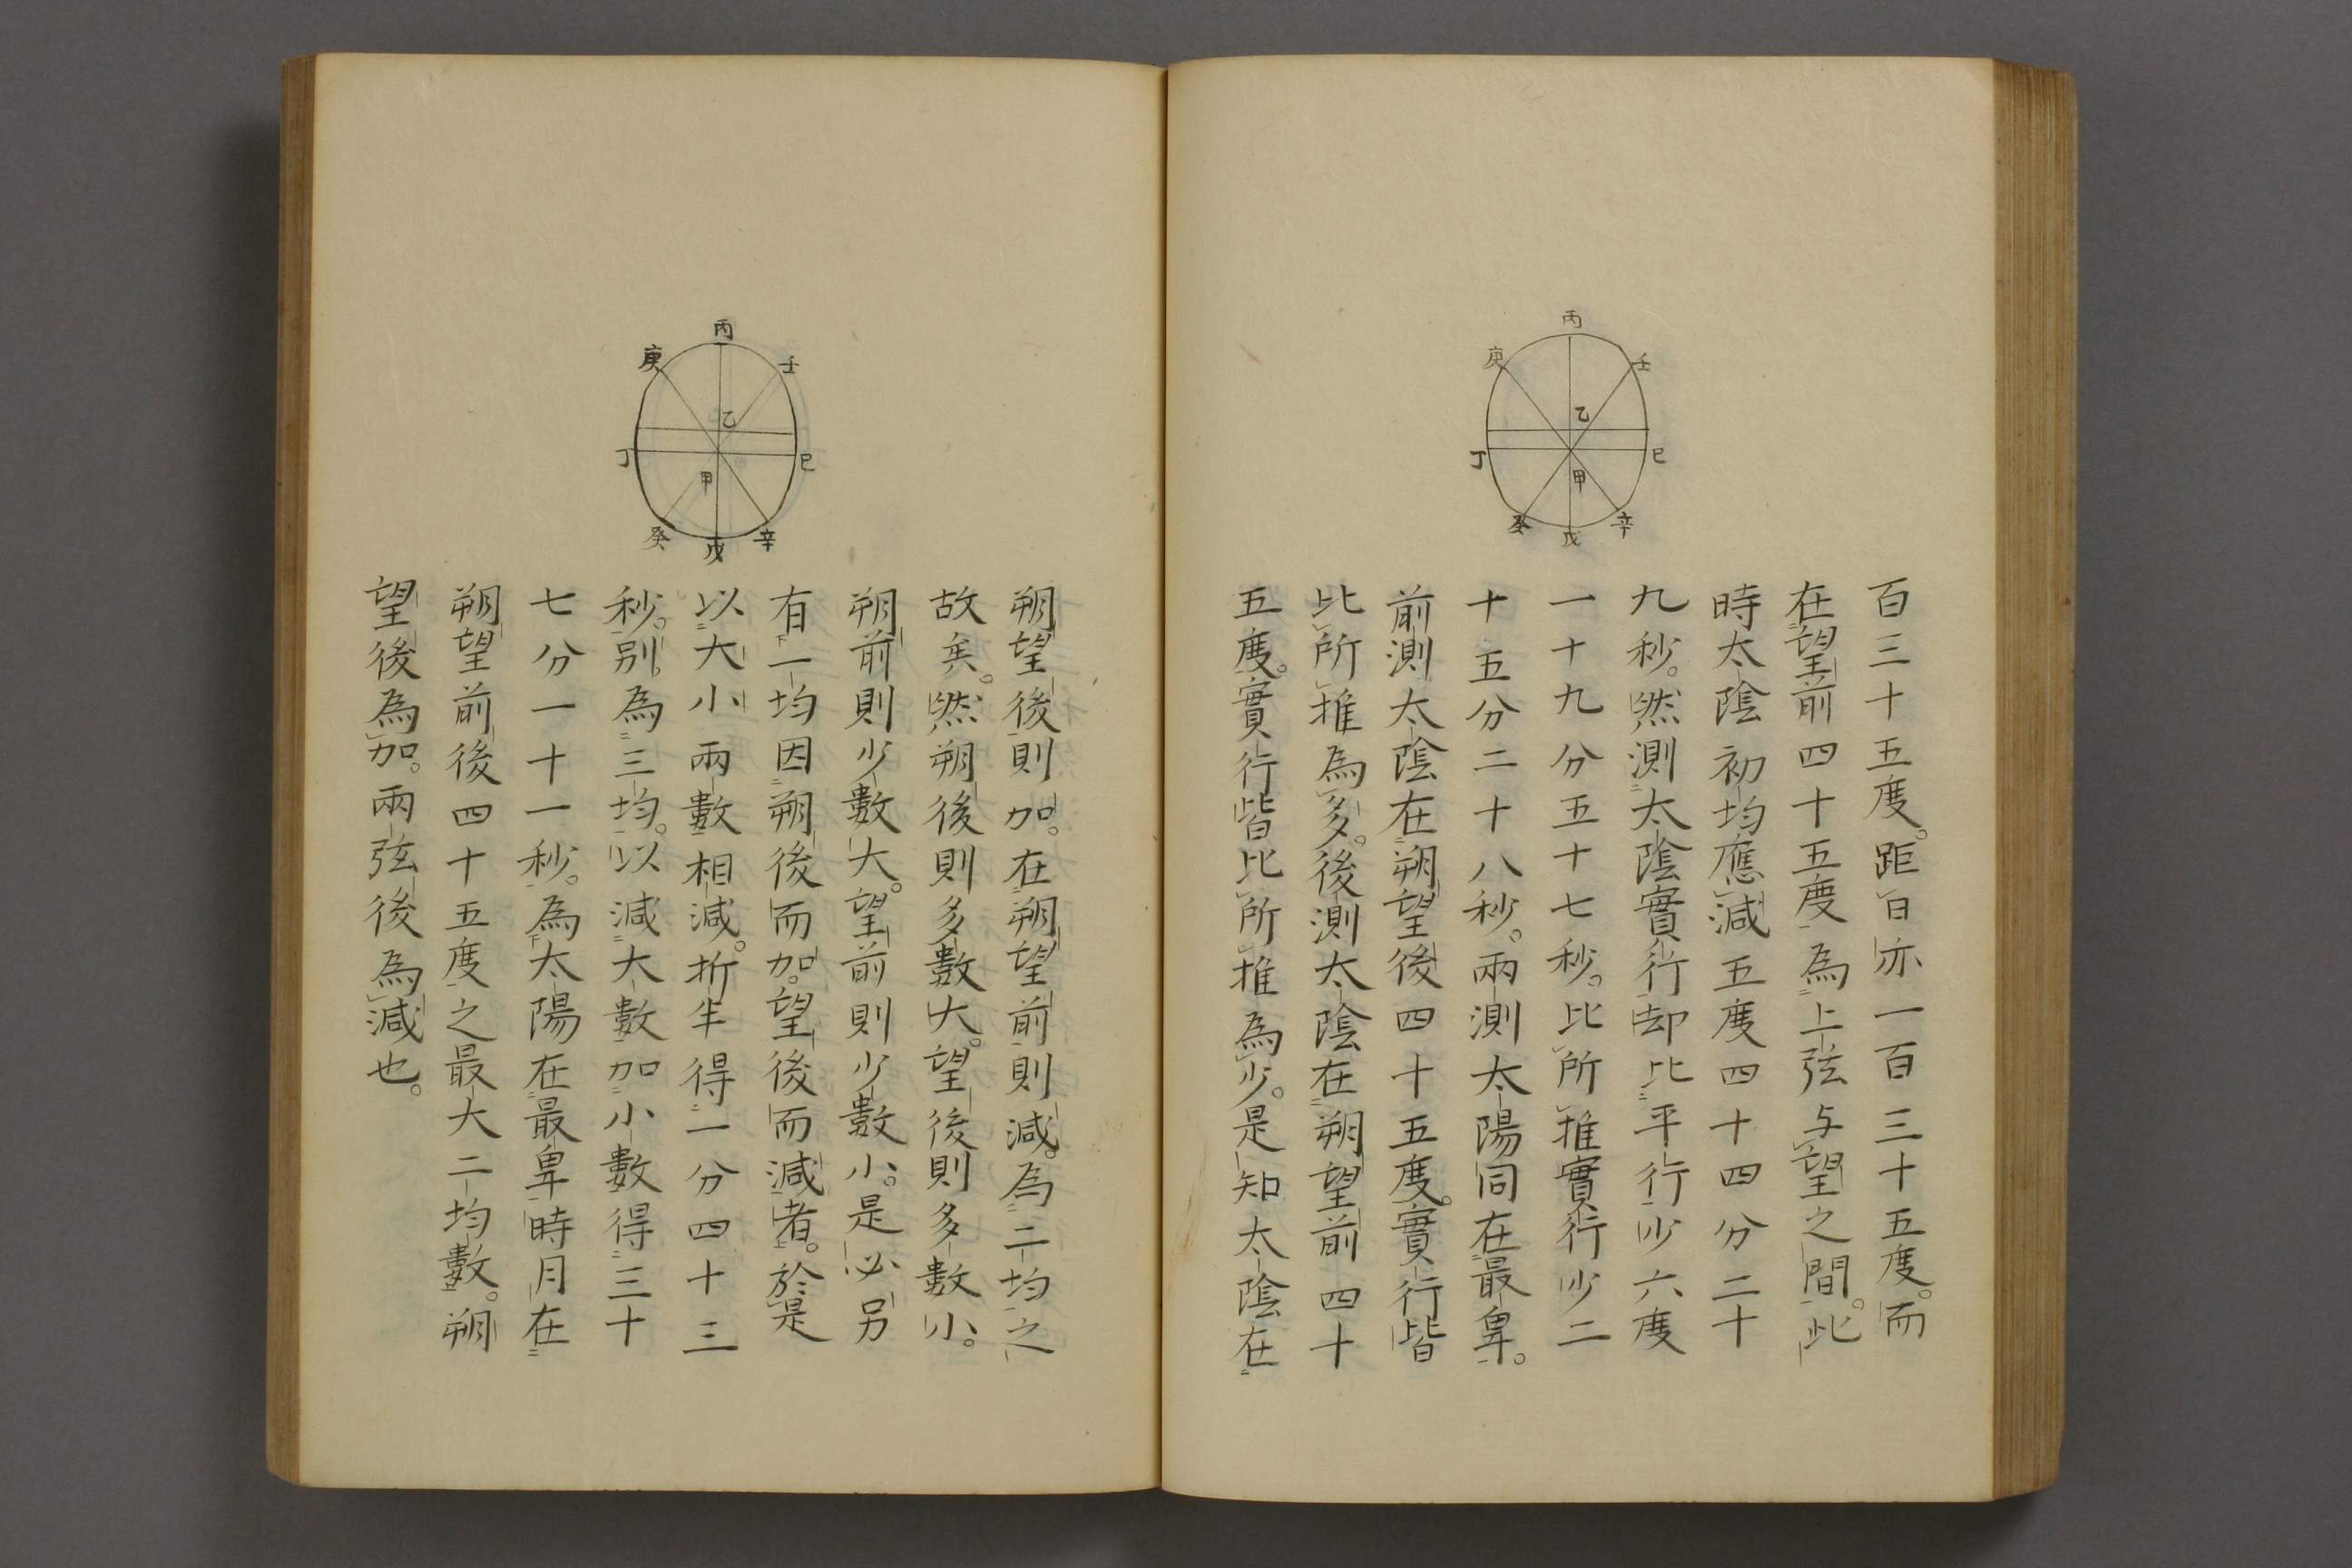 丙
庚
壬
乙
丁
巳
甲
癸
戊
辛
百三十五度。距日亦一百三十五度。而
在望前四十五度為上弦与望之間。此
時太陰初均應減五度四十四分二十
九秒。然測太陰實行却比平行少六度
一十九分五十七秒。比所推實行少二
十五分二十八秒。兩測太陽同在最卑。
前測太陰在朔望後四十五度。實行皆
比所推為多。後測太陰在朔望前四十
五度。實行皆比所推為少。是知太陰在
丙
庚
壬
乙
丁
巳
甲
癸
戊
辛
朔望後則加。在朔望前則減。為二均之
故矣。然朔後則多數大。望後則多數小。
朔前則少數大。望前則少數小。是必另
有一均因朔後而加。望後而減者。於是
以大小兩數相減。折半得一分四十三
秒。別為三均。以減大數加小數得三十
七分一十一秒。為太陽在最卑時月在
朔望前後四十五度之最大二均數。朔
望後為加。兩弦後為減也。